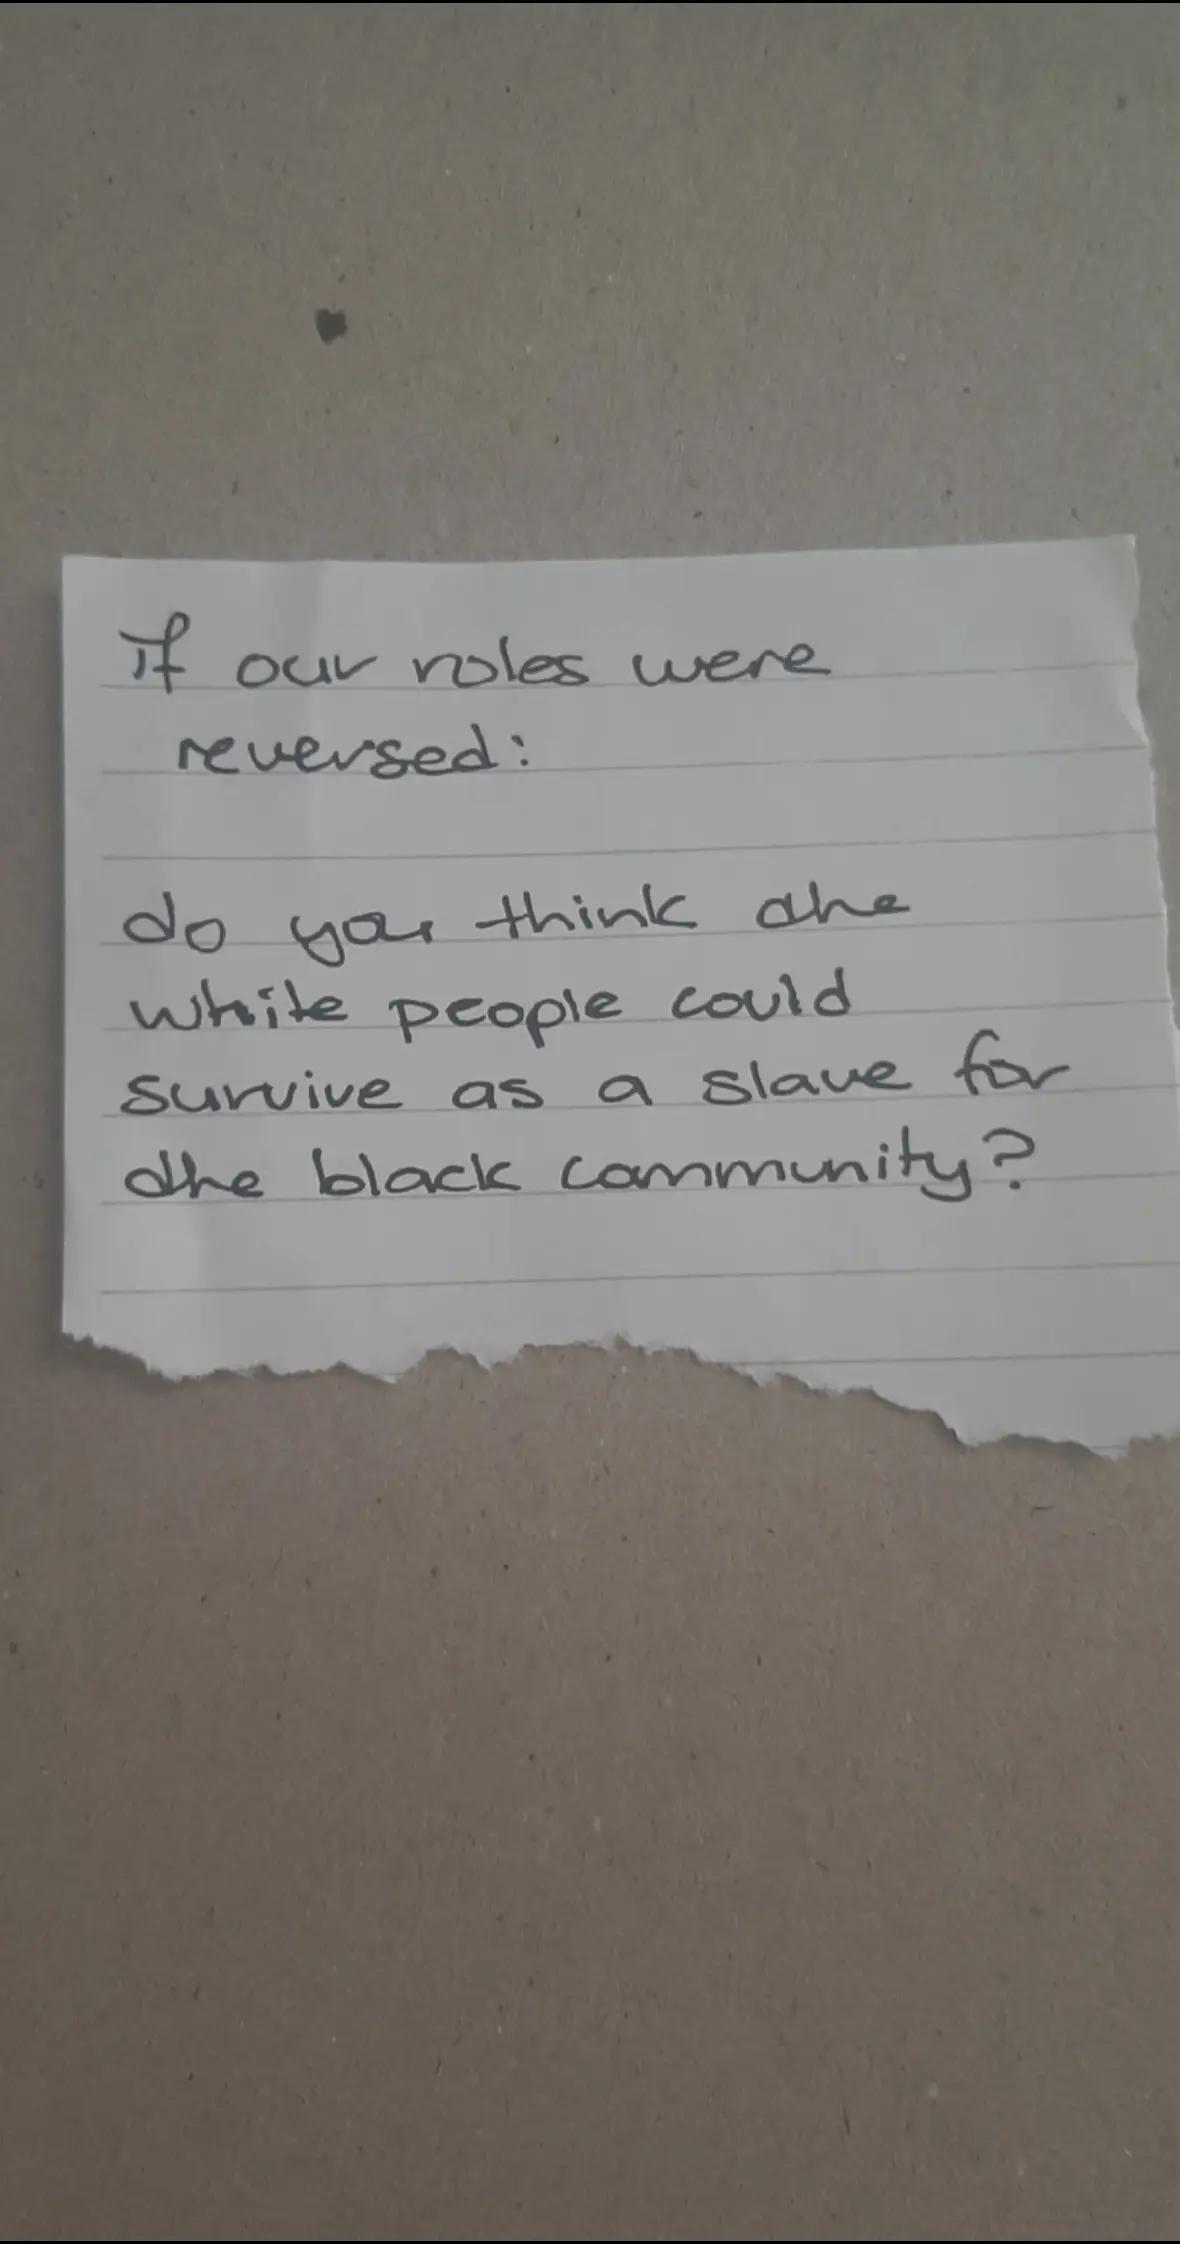 If our roles were
reversed:
do you think dhe
white people could
survive as a slave for
dhe black community?